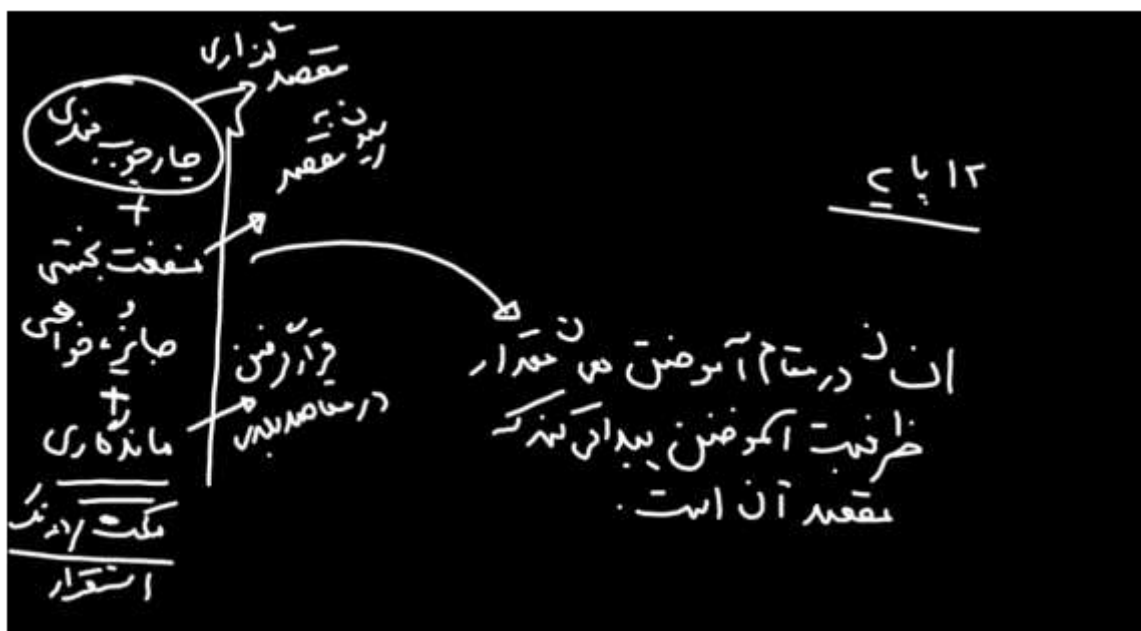 ۱۲ پا ت
مقصد گذاری
چارچوب بندی
+
رسیدن به مقصد
منفعت بخشی
جایزه خواهی
+
ماندگاری
قرار گرفتن
در مقاصد بعدی
مکث / درنگ
استقرار
انسان در مقام آموختن همان مقدار
ظرفیت آموختن پیدا می کند که
مقصد آن است.